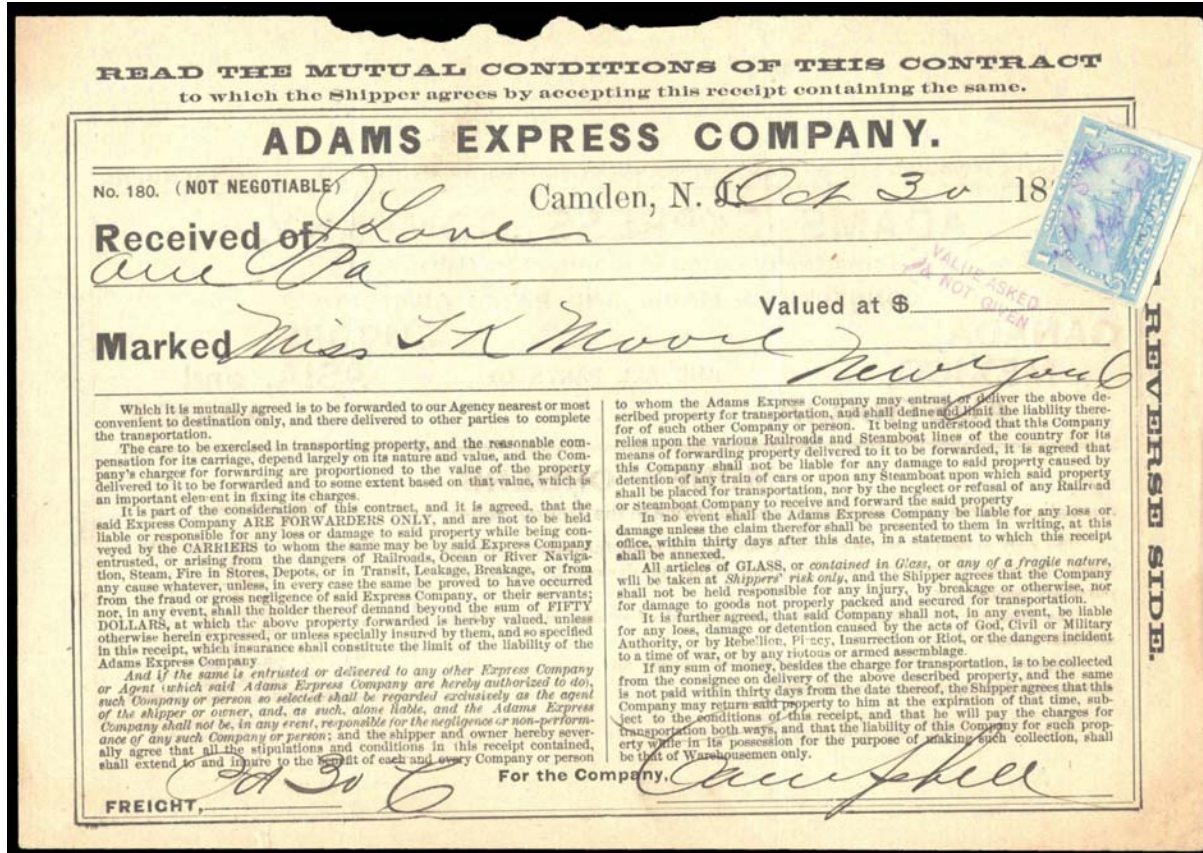 READ THE MUTUAL CONDITIONS OF THIS CONTRACT
to which the Shipper agrees by accepting this receipt containing the same.
ADAMS EXPRESS COMPANY.
No. 180. (NOT NEGOTIABLE)
Camden, N. J. Oct 30 18
Received of J Lane
One Pa
VALUE ASKED
& NOT GIVEN
Valued at $
Marked Miss L K Moore
New York C
Which it is mutually agreed is to be forwarded to our Agency nearest or most
convenient to destination only, and there delivered to other parties to complete
the transportation.
The care to be exercised in transporting property, and the reasonable com-
pensation for its carriage, depend largely on its nature and value, and the Com-
pany's charges for forwarding are proportioned to the value of the property
delivered to it to be forwarded and to some extent based on that value, which is
an important element in fixing its charges.
It is part of the consideration of this contract, and it is agreed, that the
said Express Company ARE FORWARDERS ONLY, and are not to be held
liable or responsible for any loss or damage to said property while being con-
veyed by the CARRIERS to whom the same may be by said Express Company
entrusted, or arising from the dangers of Railroads, Ocean or River Naviga-
tion, Steam, Fire in Stores, Depots, or in Transit, Leakage, Breakage, or from
any cause whatever, unless, in every case the same be proved to have occurred
from the fraud or gross negligence of said Express Company, or their servants;
nor, in any event, shall the holder thereof demand beyond the sum of FIFTY
DOLLARS, at which the above property forwarded is hereby valued, unless
otherwise herein expressed, or unless specially insured by them, and so specified
in this receipt, which insurance shall constitute the limit of the liability of the
Adams Express Company
And if the same is entrusted or delivered to any other Express Company
or Agent (which said Adams Express Company are hereby authorized to do),
such Company or person so selected shall be regarded exclusively as the agent
of the shipper or owner, and, as such, alone liable, and the Adams Express
Company shall not be, in any event, responsible for the negligence or non-perform-
ance of any such Company or person; and the shipper and owner hereby sever-
ally agree that all the stipulations and conditions in this receipt contained,
shall extend to and inure to the benefit of each and every Company or person
to whom the Adams Express Company may entrust or deliver the above de-
scribed property for transportation, and shall define and limit the liability there-
for of such other Company or person. It being understood that this Company
relies upon the various Railroads and Steamboat lines of the country for its
means of forwarding property delivered to it to be forwarded, it is agreed that
this Company shall not be liable for any damage to said property caused by
detention of any train of cars or upon any Steamboat upon which said property
shall be placed for transportation, nor by the neglect or refusal of any Railroad
or Steamboat Company to receive and forward the said property
In no event shall the Adams Express Company be liable for any loss or
damage unless the claim therefor shall be presented to them in writing, at this
office, within thirty days after this date, in a statement to which this receipt
shall be annexed.
All articles of GLASS, or contained in Glass, or any of a fragile nature,
will be taken at Shippers' risk only, and the Shipper agrees that the Company
shall not be held responsible for any injury, by breakage or otherwise, nor
for damage to goods not properly packed and secured for transportation.
It is further agreed, that said Company shall not, in any event, be liable
for any loss, damage or detention caused by the acts of God, Civil or Military
Authority, or by Rebellion, Piracy, Insurrection or Riot, or the dangers incident
to a time of war, or by any riotous or armed assemblage.
If any sum of money, besides the charge for transportation, is to be collected
from the consignee on delivery of the above described property, and the same
is not paid within thirty days from the date thereof, the Shipper agrees that this
Company may return said property to him at the expiration of that time, sub-
ject to the conditions of this receipt, and that he will pay the charges for
transportation both ways, and that the liability of this Company for such prop-
erty while in its possession for the purpose of making such collection, shall
be that of Warehousemen only.
For the Company, Campbell
FREIGHT, Pd 30 C
REVERSE SIDE.